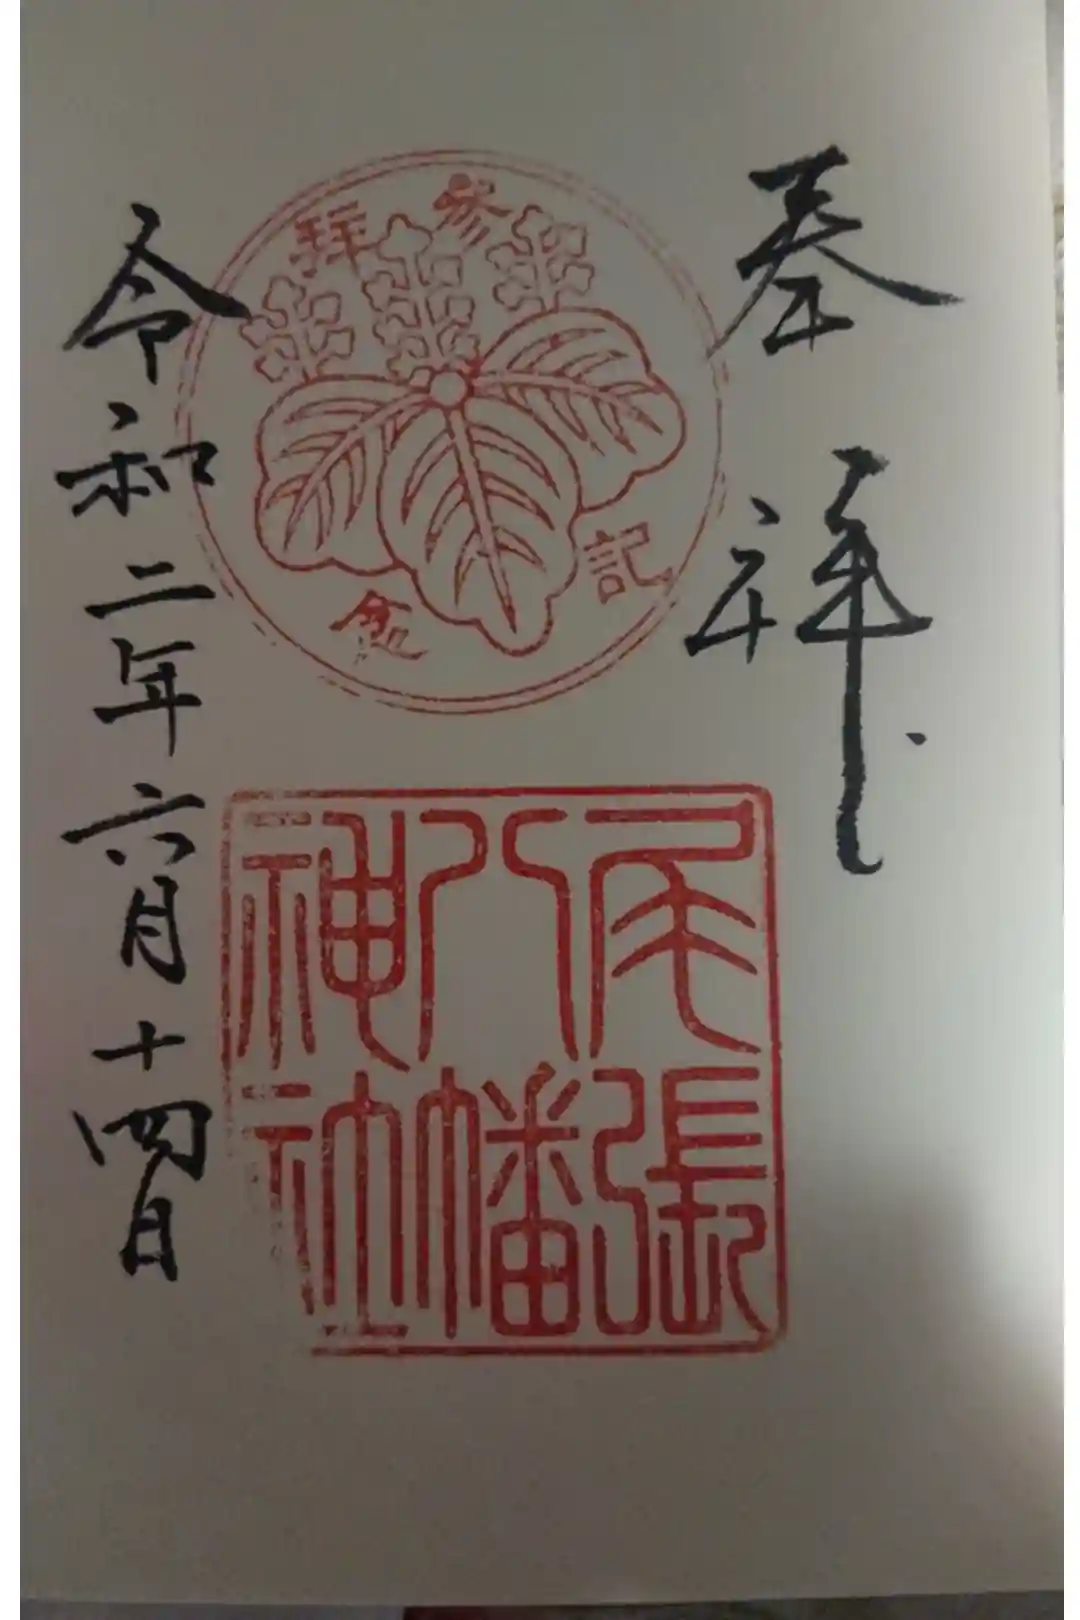 奉拝
参拝
記念
尾張
八幡
神社
令和二年六月十四日